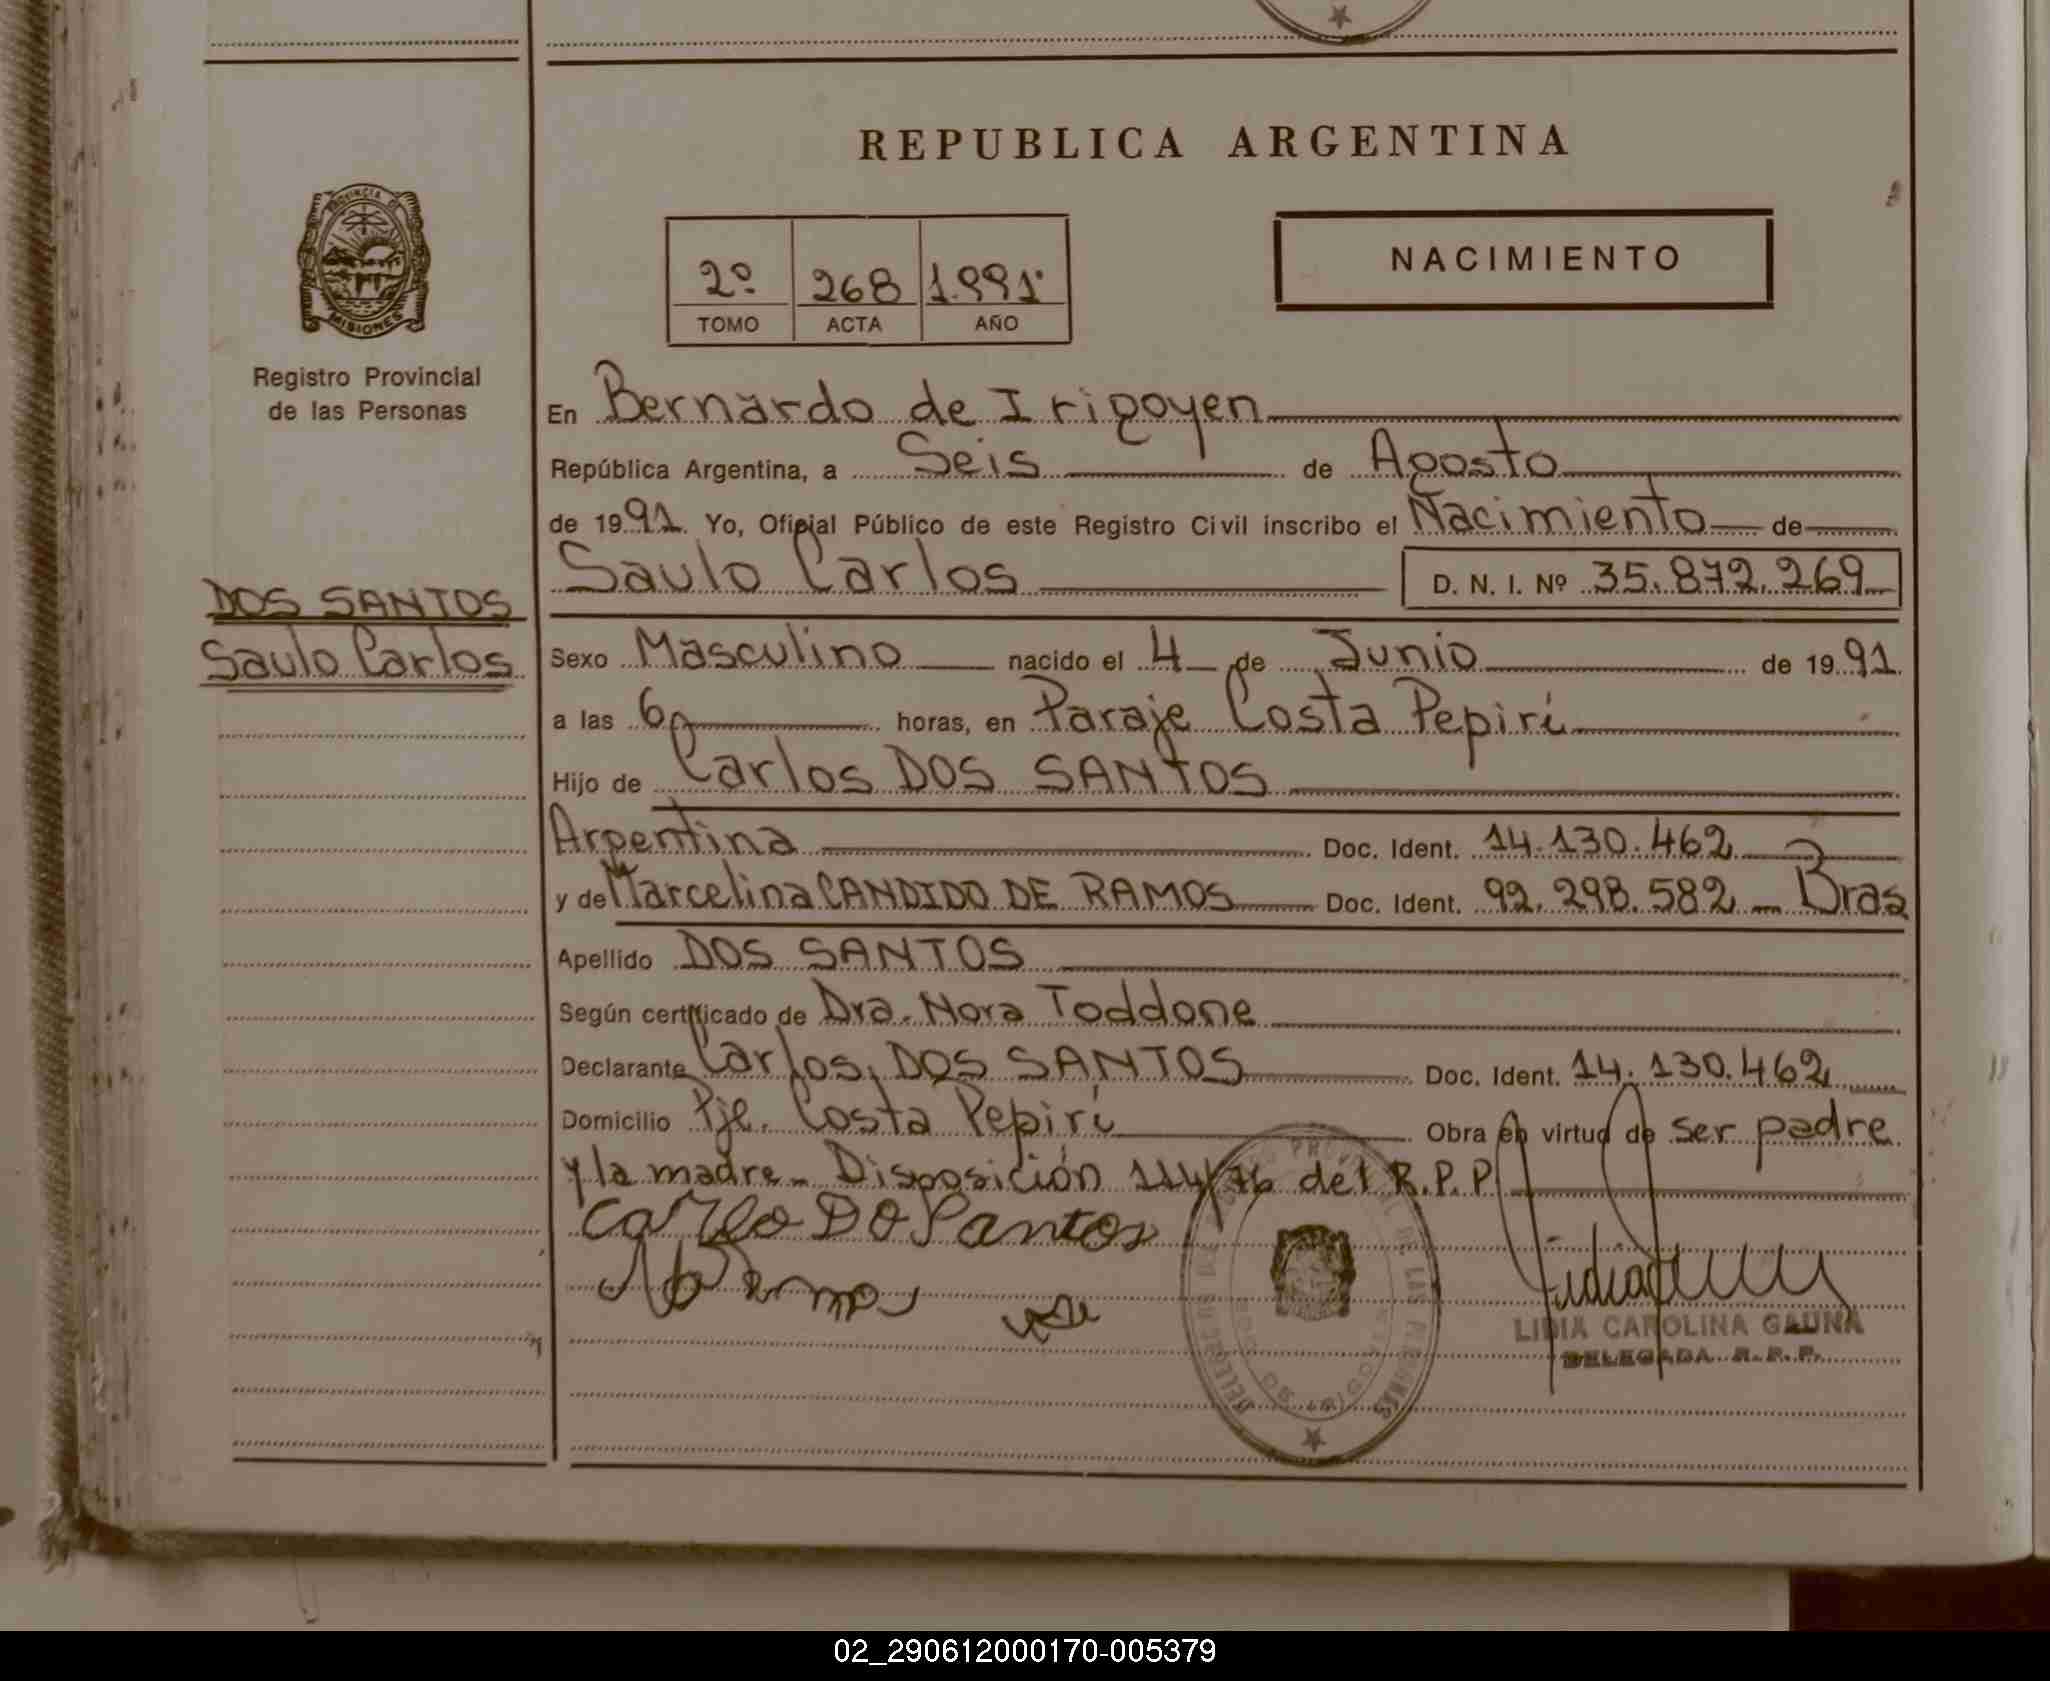 REPUBLICA ARGENTINA
PROVINCIA DE
MISIONES
Registro Provincial
de las Personas
DOS SANTOS
Saulo Carlos
2º 268 1.991
TOMO ACTA AÑO
NACIMIENTO
En Bernardo de Irigoyen
República Argentina, a Seis de Agosto
de 1991. Yo, Oficial Público de este Registro Civil inscribo el Nacimiento de
Saulo Carlos D. N. I. Nº 35.872.269
Sexo Masculino nacido el 4 de Junio de 1991
a las 6 horas, en Paraje Costa Pepirí
Hijo de Carlos DOS SANTOS
Argentina Doc. Ident. 14.130.462
y de Marcelina CANDIDO DE RAMOS Doc. Ident. 92.298.582 Bras
Apellido DOS SANTOS
Según certificado de Dra. Nora Toddone
Declarante Carlos DOS SANTOS Doc. Ident. 14.130.462
Domicilio Pje. Costa Pepirí Obra en virtud de ser padre
y la madre. Disposición 114/76 del R.P.P.
Carlo DO Santos
LIDIA CAROLINA GAUNA
DELEGADA R.P.P.
02_290612000170-005379